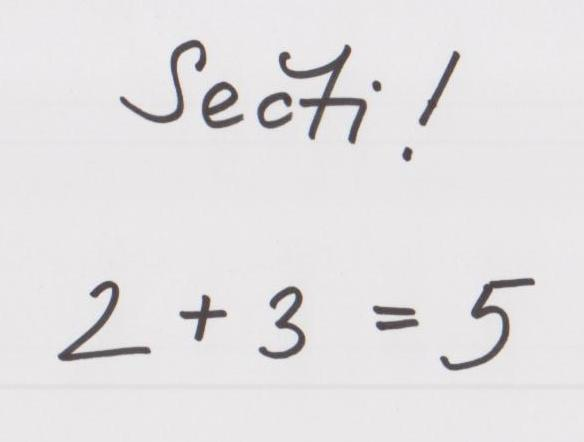 Secti!
2 + 3 = 5